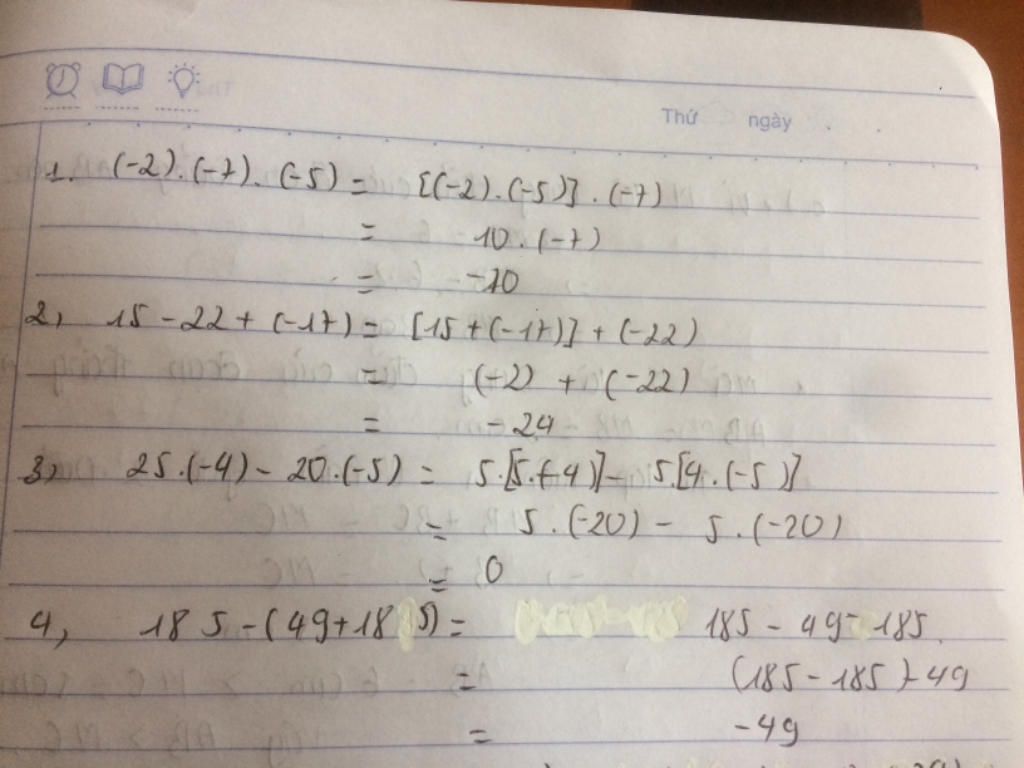 Thứ ngày
1. (-2).(-7).(-5) = [(-2).(-5)].(-7)
= 10.(-7)
= -70
2, 15 - 22 + (-17) = [15 + (-17)] + (-22)
= (-2) + (-22)
= -24
3) 25.(-4) - 20.(-5) = 5.[5.(-4)] - 5.[4.(-5)]
= 5.(-20) - 5.(-20)
= 0
4, 185 - (49 + 185) = 185 - 49 - 185
= (185 - 185) - 49
= -49